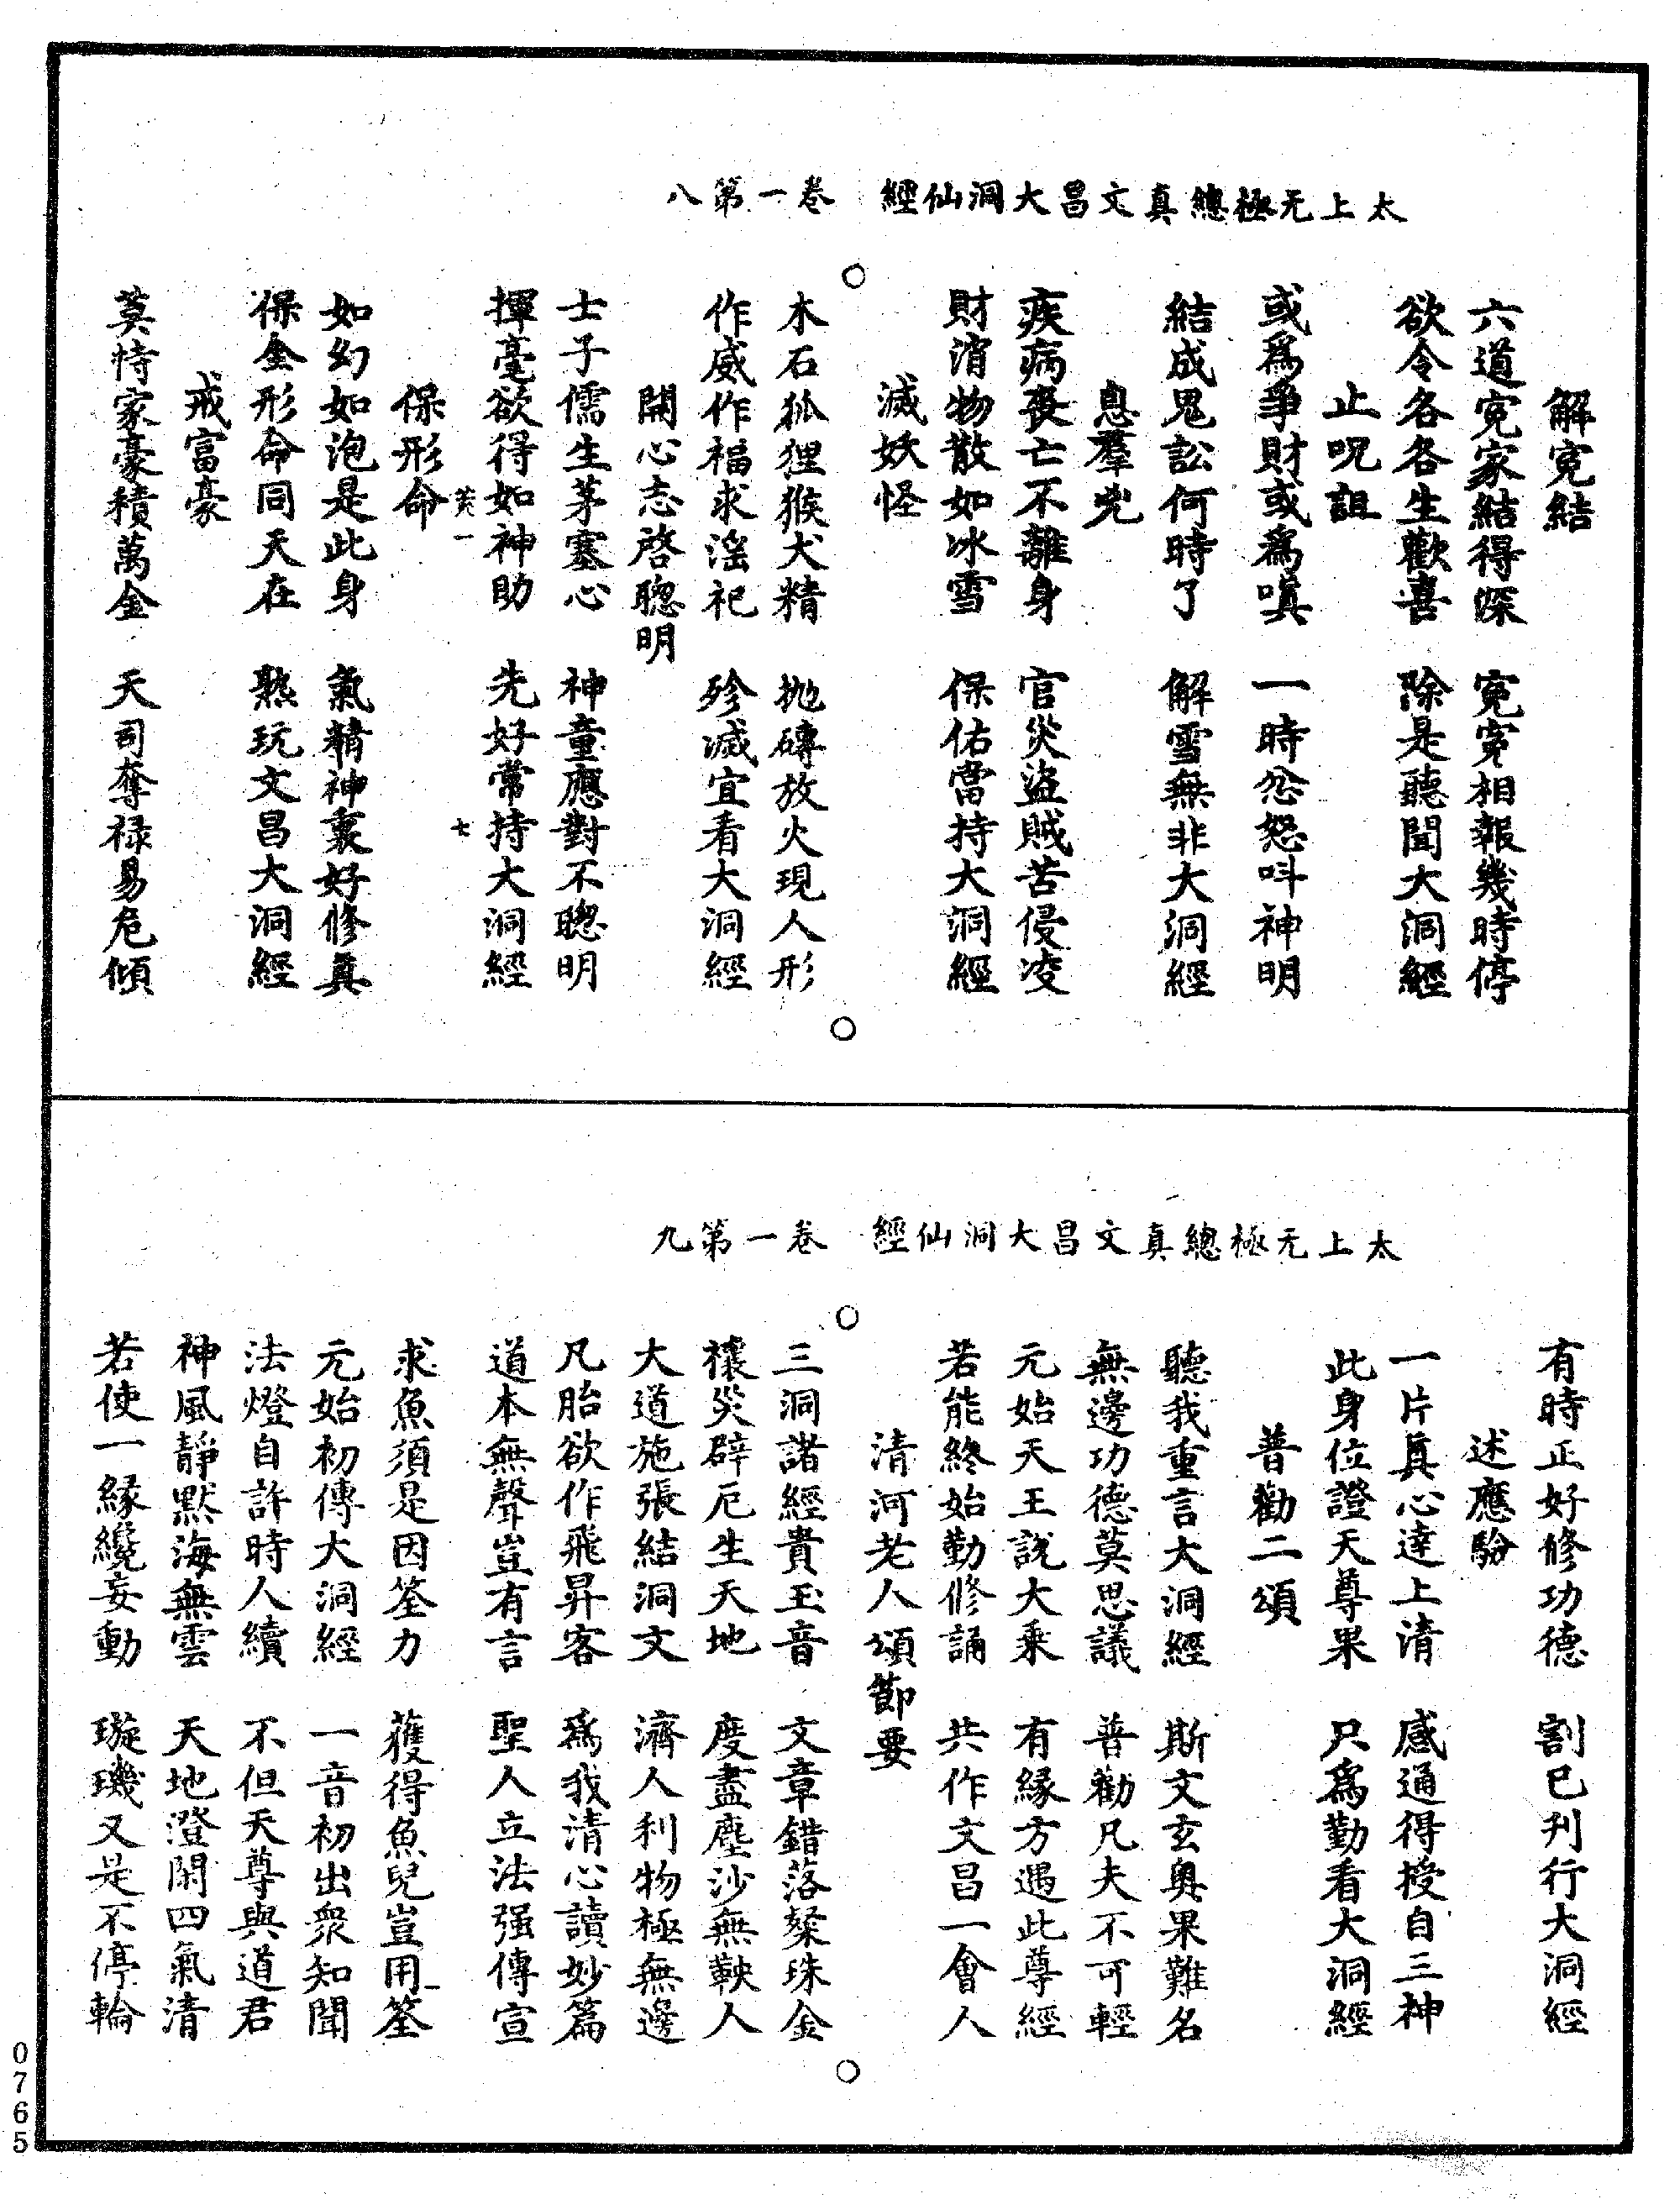 太上无極總真文昌大洞仙經　卷一第八
解寃結
六道寃家結得深　寃寃相報幾時停
欲令各各生歡喜　除是聽聞大洞經
止呪詛
或爲爭財或爲嗔　一時忿怒呌神明
結成鬼訟何時了　解雪無非大洞經
息羣兇
疾病喪亡不離身　官災盜賊苦侵凌
財消物散如冰雪　保佑當持大洞經
滅妖怪
木石狐狸猴犬精　抛磚放火現人形
作威作福求滛祀　殄滅宜看大洞經
開心志啓聰明
士子儒生茅塞心　神童應對不聰明
揮毫欲得如神助　先好常持大洞經
荒一　七
保形命
如幻如泡是此身　氣精神裏好修真
保全形命同天在　熟玩文昌大洞經
戒富豪
莫恃家豪積萬金　天司奪禄易危傾
太上无極總真文昌大洞仙經　卷一第九
有時正好修功德　割巳刋行大洞經
述應驗
一片真心達上清　感通得授自三神
此身位證天尊果　只爲勤看大洞經
普勸二頌
聽我重言大洞經　斯文玄奥果難名
無邊功德莫思議　普勸凡夫不可輕
元始天王説大乘　有縁方遇此尊經
若能終始勤修誦　共作文昌一會人
清河老人頌節要
三洞諸經貴玉音　文章錯落粲珠金
禳災辟厄生天地　度盡塵沙無鞅人
大道施張結洞文　濟人利物極無邊
凡胎欲作飛昇客　爲我清心讀妙篇
道本無聲豈有言　聖人立法强傳宣
求魚須是因筌力　獲得魚兒豈用筌
元始初傳大洞經　一音初出衆知聞
法燈自許時人續　不但天尊與道君
神風靜默海無雲　天地澄閑四氣清
若使一縁纔妄動　璇璣又是不停輪
0765